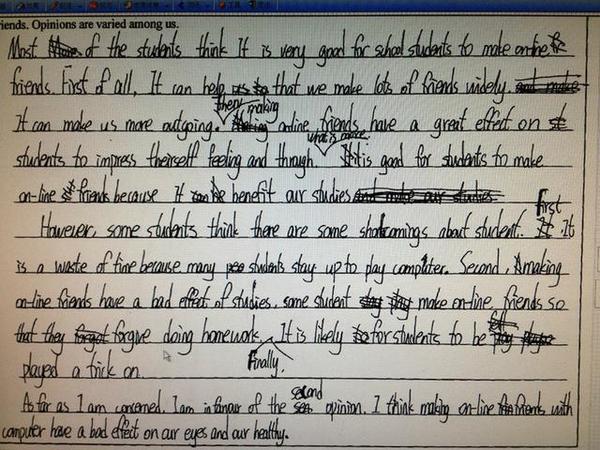 iends. Opinions are varied among us.
Most of the students think It is very good for school students to make on-line
friends. First of all, It can help that we make lots of friends widely.
It can make us more outgoing. then, making on-line friends have a great effect on
students to impress theirself feeling and through. what is more. It is good for students to make
on-line friends because It benefit our studies
However, some students think there are some shotcomings about student. First. It
is a waste of time because many students stay up to play computer. Second, making
on-line friends have a bad effect of studies. some student make on-line friends so
that they forgive doing homework. Finally. It is likely for students to be
played a trick on.
As far as I am concerned. I am in favour of the second opinion. I think making on-line friends with
computer have a bad effect on our eyes and our healthy.